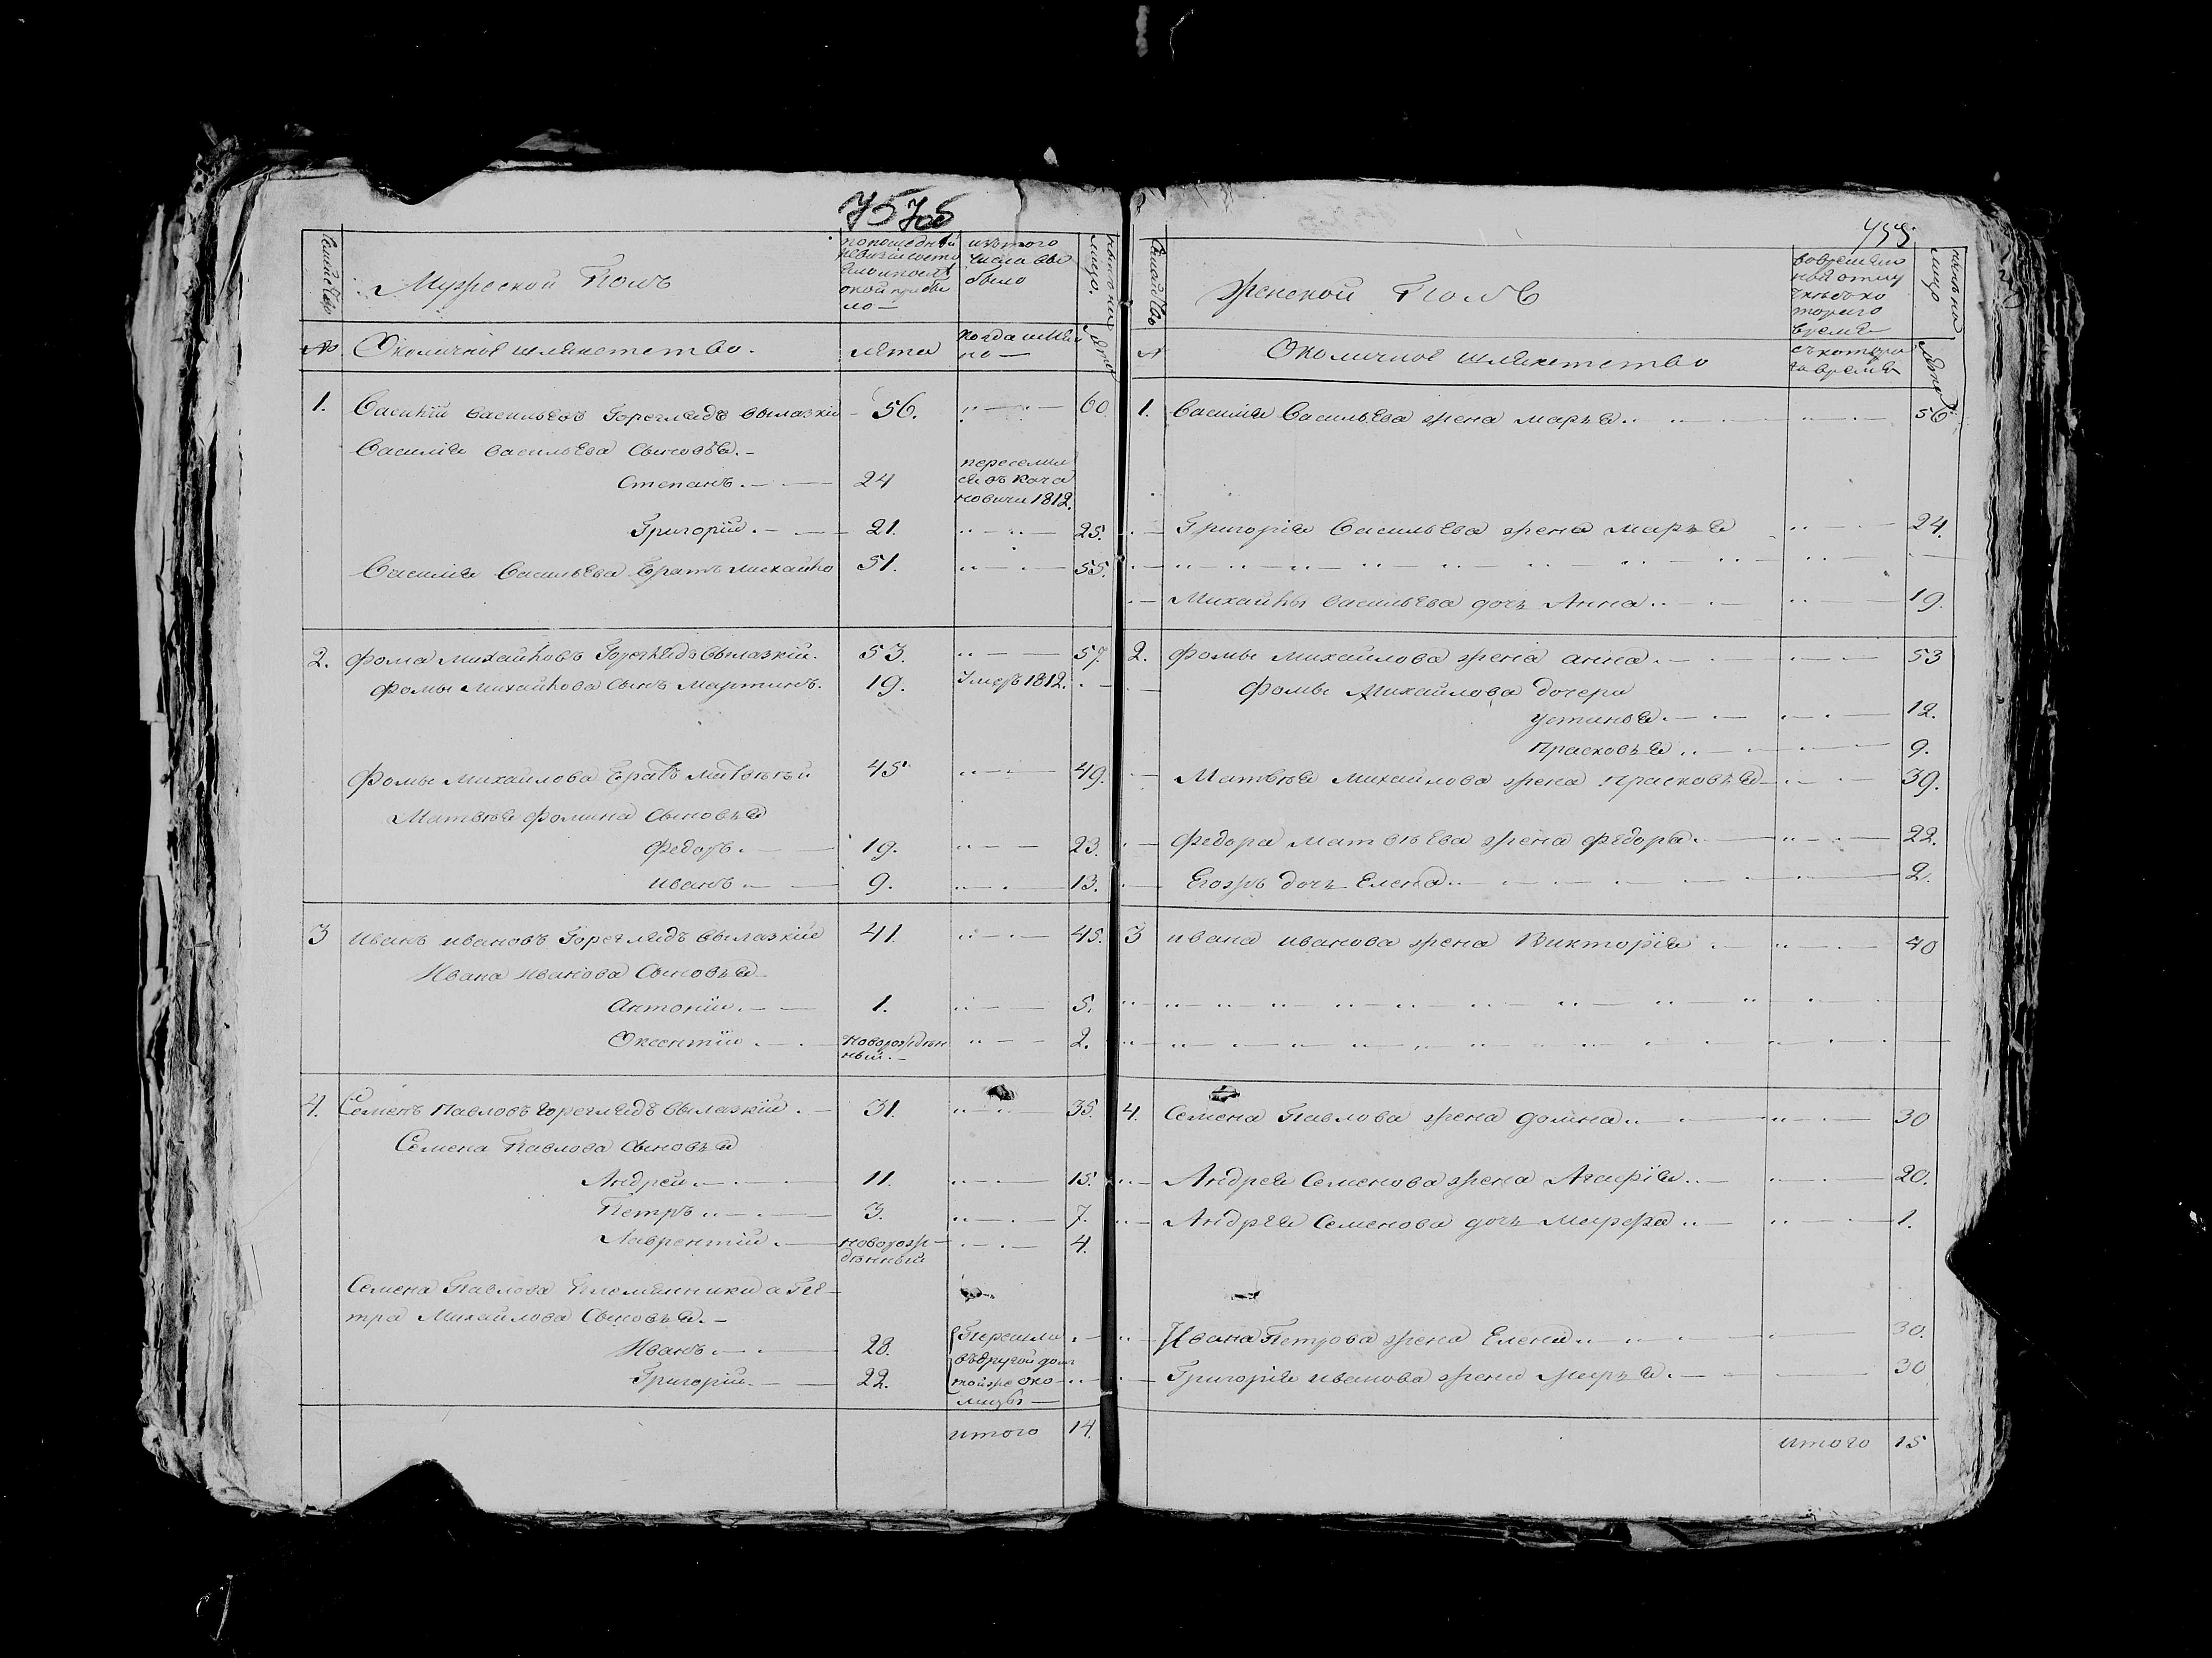 7576
Семейство
Мужеской Полъ
по последней
ревизии состо
яло и после
оной прибы
ло —
изтого
числа вы
было
ныне на
лицо.
№
Околичное шляхетство.
лета
когда имян
но —
лета
1. Василій Васильевъ Горегляд Вылазкій — 56. 60.
Василия Васильева Сыновья. —
Степанъ. — 24 переселил
ся въ Кача
новичи 1812.
Григорій. — 21. 25.
Василия Васильева Братъ Михайло 51. 55.
2. Фома Михайловъ Горегляд Вылазкій. 53. 57.
Фомы Михайлова Сынъ Мартинъ. 19. Умеръ 1812.
Фомы Михайлова Братъ Матвей 45 49.
Матвея Фомина Сыновья
Федоръ. — 19. 23.
Иванъ. — 9. 13.
3 Иванъ Ивановъ Гореглядъ Вылазкій 41. 45.
Ивана Иванова Сыновья
Антоній. — 1. 5.
Оксентій. — Новорожден
ный. — 2.
4. Семенъ Павловъ Гореглядъ Вылазкій. — 31. 35.
Семена Павлова Сыновья
Андрей. — 11. 15.
Петръ. — 3. 7.
Лаврентій. — новорож-
денный 4.
Семена Павлова Племянники а Пе-
тра Михайлова Сыновья. —
Иванъ. — 28. Перешли
Григорій. — 22. въ другой домъ
той же око-
лицы —
итого 14.
755
Семейство
Женской Полъ
во времян
ной отлу
чке съ ко
тораго
время
ныне на
лицо
№
Околичное шляхетство
съ котора
го время
лета
1. Василия Васильева жена Марья. 56
Григорія Васильева жена Марья 24.
Михайлы Васильева дочь Анна. 19.
2. Фомы Михайлова жена Анна. 53
Фомы Михайлова дочери
Устинья. — 12.
Прасковья. — 9.
Матвея Михайлова жена Прасковья 39.
Федора Матвеева жена Федора. 22.
Егожъ дочь Елена. 2.
3 Ивана Иванова жена Викторія 40
4. Семена Павлова жена Домна. 30
Андрея Семенова жена Агафія. 20.
Андрея Семенова дочь Марфа. 1.
Ивана Петрова жена Елена. 30.
Григорія Иванова жена Марья. 30
итого 15